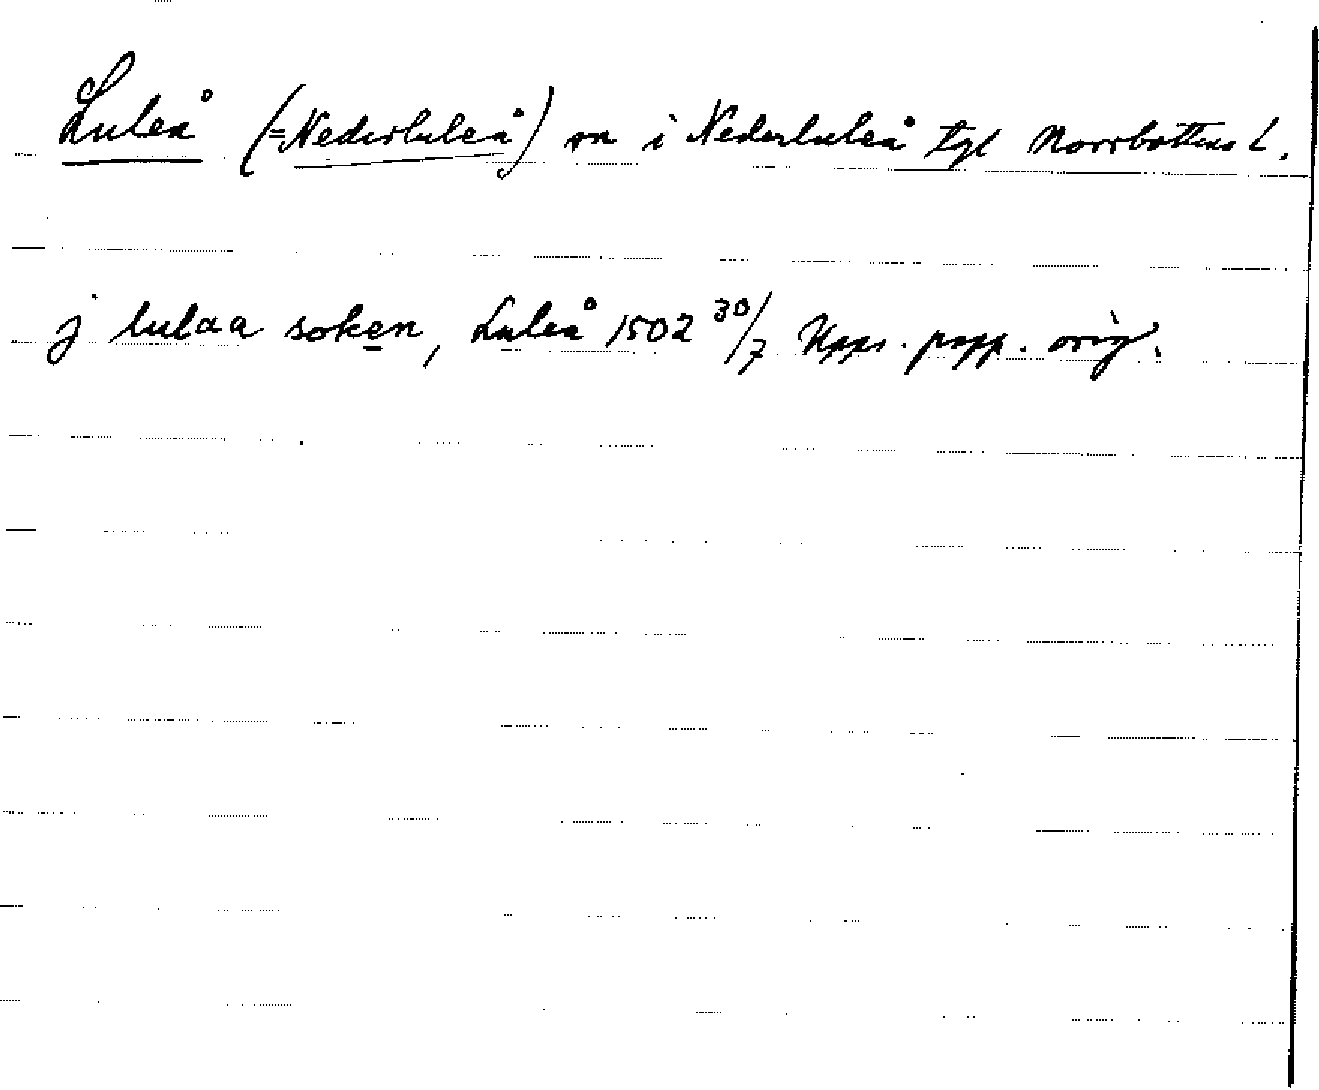 Luleå (=Nederluleå) sn i Nederluleå tgl Norrbottens L.
j lulaa soken, Luleå 1502 30/7 Upps. papp. orig.